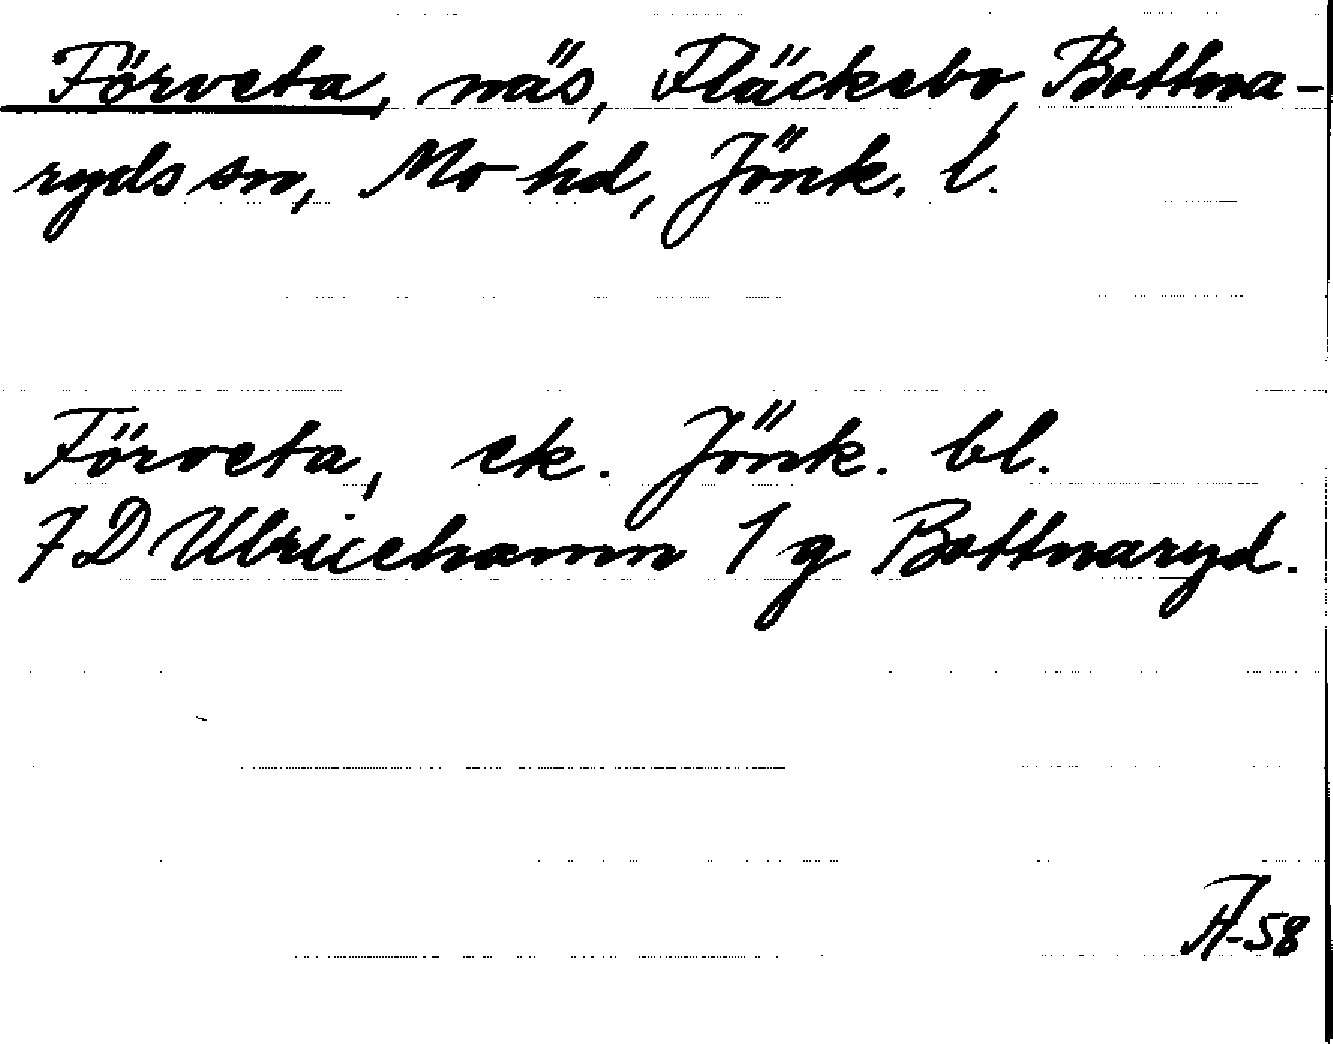 Förveta, näs, Fläckebo, Bottna-
ryds sn, Mo hd, Jönk. l.
Förveta, ek. Jönk. bl.
7 D Ulricehamn 1 g Bottnaryd.
-58